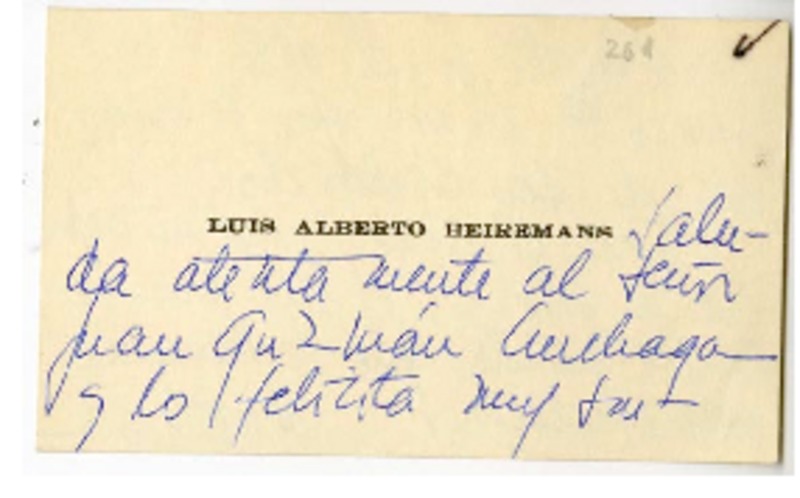 261
LUIS ALBERTO HEIREMANS Salu-
da atentamente al señor
Juan Guzmán Cruchaga
y lo felicita muy sin-